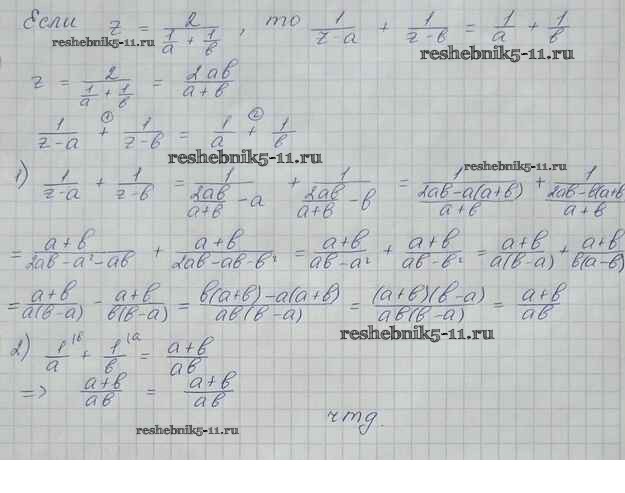 Если z = 2/(1/a + 1/b), то 1/(z-a) + 1/(z-b) = 1/a + 1/b
reshebnik5-11.ru reshebnik5-11.ru
z = 2/(1/a + 1/b) = 2ab/(a+b)
1/(z-a) +① 1/(z-b) = 1/a +② 1/b
reshebnik5-11.ru reshebnik5-11.ru
1) 1/(z-a) + 1/(z-b) = 1/(2ab/(a+b) - a) + 1/(2ab/(a+b) - b) = 1/((2ab-a(a+b))/(a+b)) + 1/((2ab-b(a+b)/(a+b))
= (a+b)/(2ab-a²-ab) + (a+b)/(2ab-ab-b²) = (a+b)/(ab-a²) + (a+b)/(ab-b²) = (a+b)/(a(b-a)) + (a+b)/(b(a-b))
= (a+b)/(a(b-a)) - (a+b)/(b(b-a)) = (b(a+b)-a(a+b))/(ab(b-a)) = ((a+b)(b-a))/(ab(b-a)) = (a+b)/(ab)
reshebnik5-11.ru
2) 1\b/a + 1\a/b = (a+b)/(ab)
=> (a+b)/(ab) = (a+b)/(ab)
чтд.
reshebnik5-11.ru